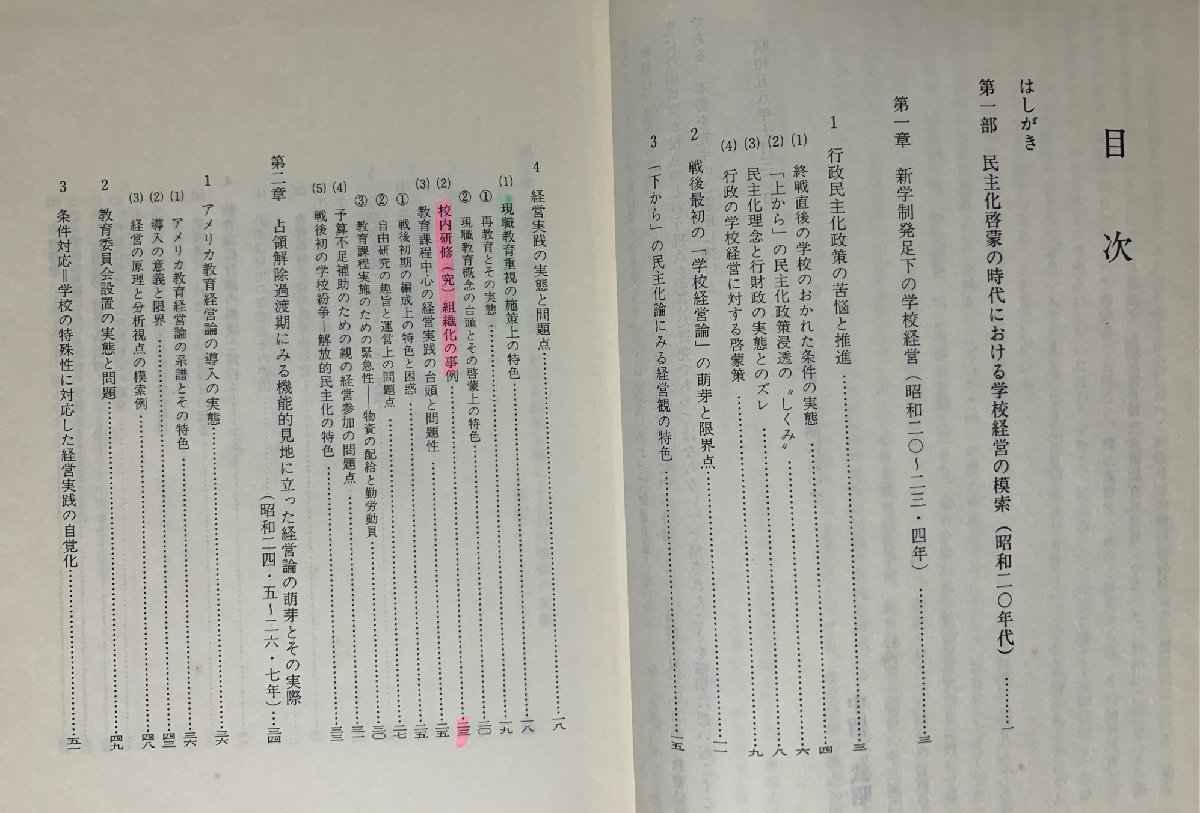 目次
はしがき
第一部 民主化啓蒙の時代における学校経営の模索(昭和二〇年代)……一
第一章 新学制発足下の学校経営(昭和二〇～二三・四年)……三
1 行政民主化政策の苦悩と推進……三
(1) 終戦直後の学校のおかれた条件の実態……四
(2) 「上から」の民主化政策浸透の〝しくみ〟……六
(3) 民主化理念と行財政の実態とのズレ……八
(4) 行政の学校経営に対する啓蒙策……九
2 戦後最初の「学校経営論」の萌芽と限界点……一一
3 「下から」の民主化論にみる経営観の特色……一五
4 経営実践の実態と問題点……一八
(1) 現職教育重視の施策上の特色……一八
① 再教育とその実態……一九
② 現職教育概念の台頭とその啓蒙上の特色……二〇
(2) 校内研修(究)組織化の事例……二三
(3) 教育課程中心の経営実践の台頭と問題性……二五
① 戦後初期の編成上の特色と困惑……二五
② 自由研究の趣旨と運営上の問題点……二七
③ 教育課程実施のための緊急性——物資の配給と勤労動員……三〇
(4) 予算不足補助のための親の経営参加の問題点……三一
(5) 戦後初の学校紛争—解放的民主化の特色……三三
第二章 占領解除過渡期にみる機能的見地に立った経営論の萌芽とその実際
(昭和二四・五～二六・七年)……三四
1 アメリカ教育経営論の導入の実態……三六
(1) アメリカ教育経営論の系譜とその特色……三六
(2) 導入の意義と限界……四三
(3) 経営の原理と分析視点の模索例……四八
2 教育委員会設置の実態と問題……四九
3 条件対応＝学校の特殊性に対応した経営実践の自覚化……五一